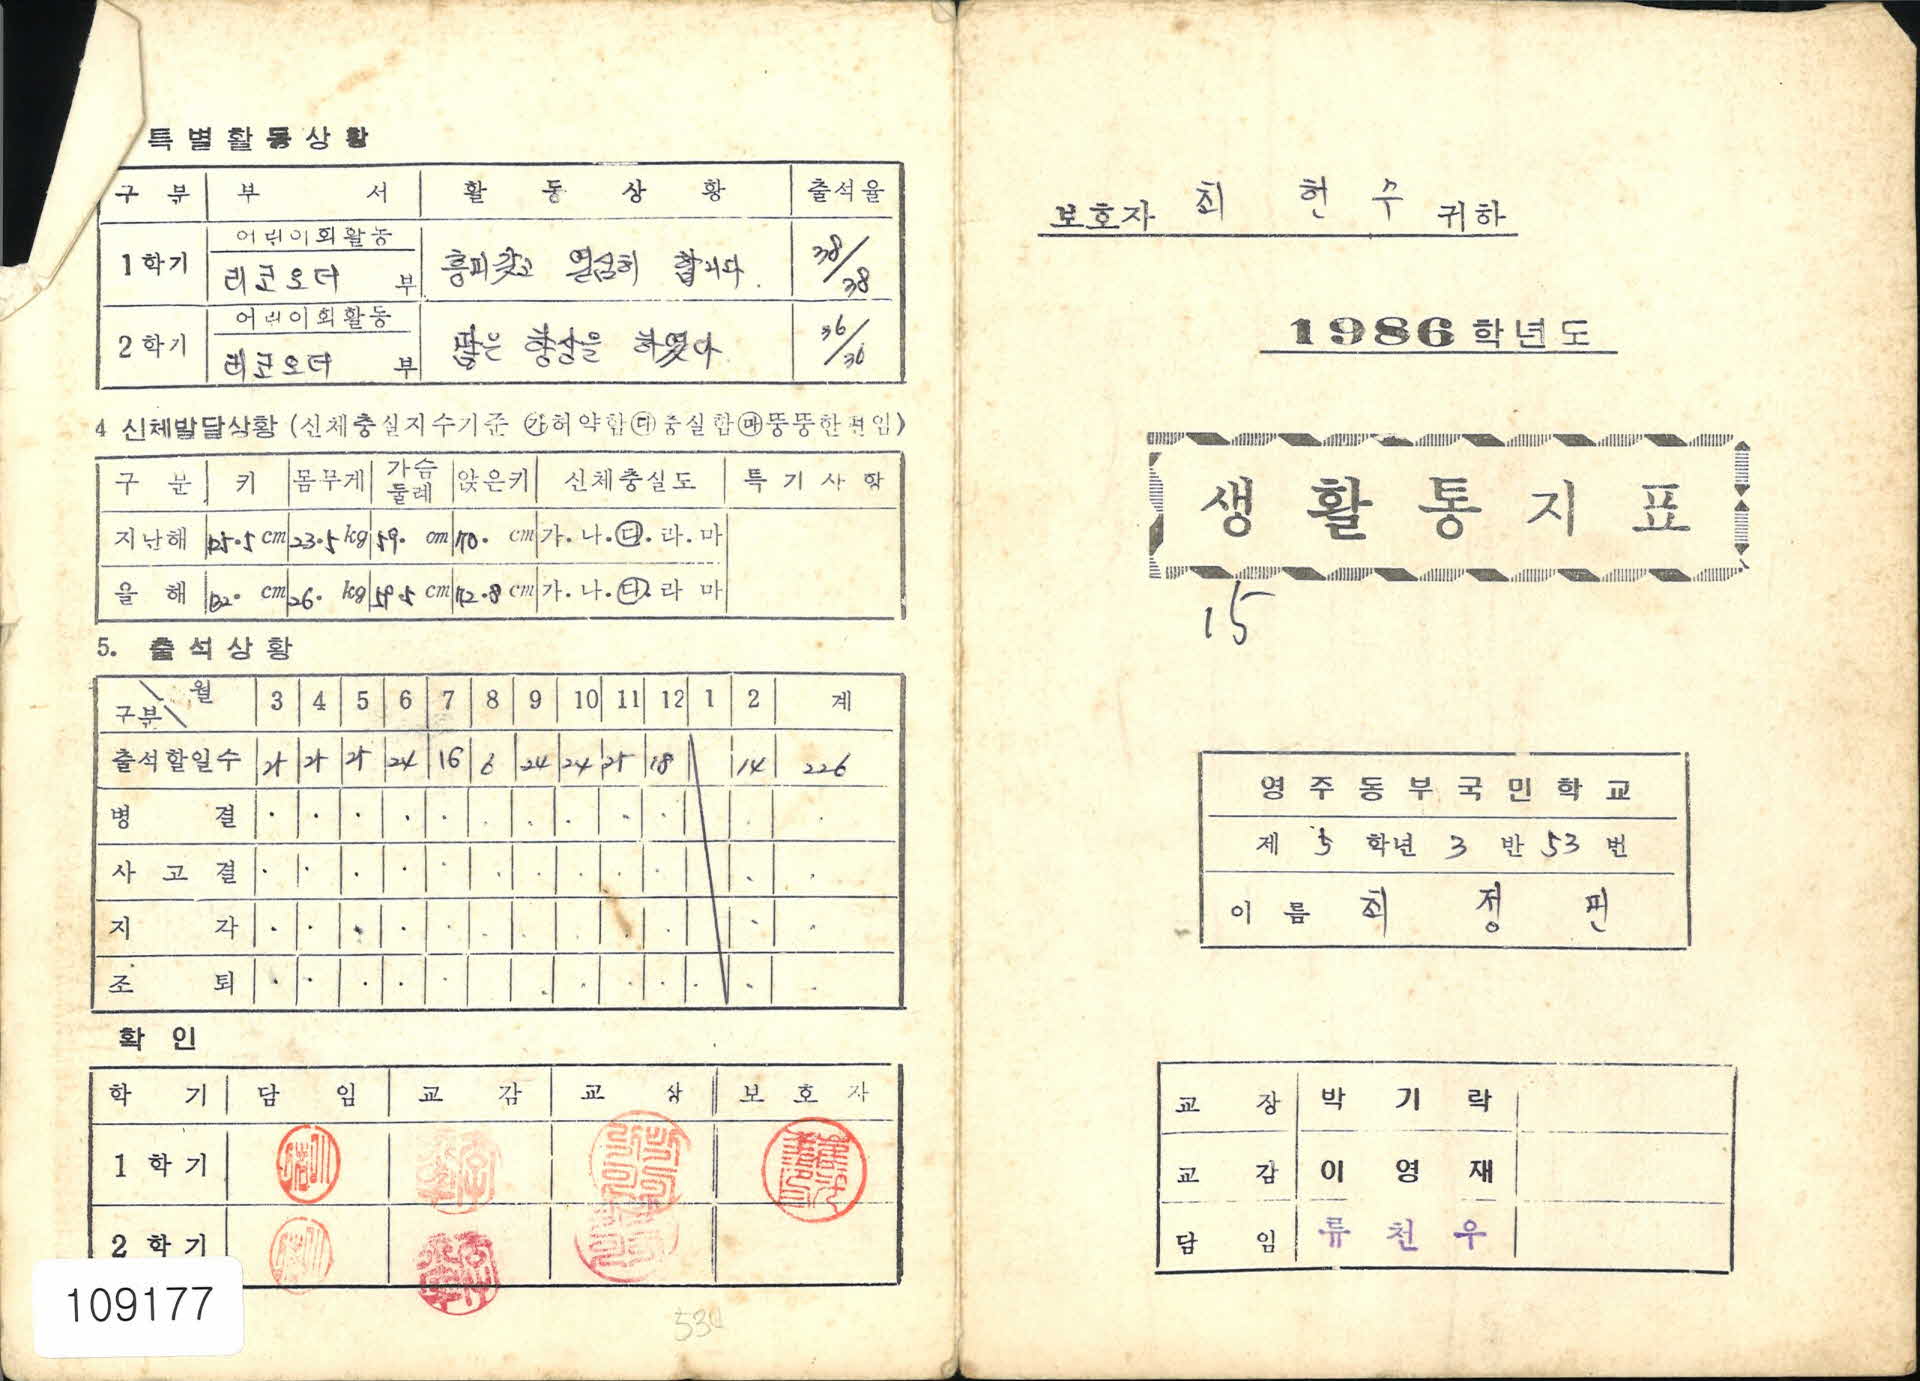 특별활동상황
구 분 부 서 활 동 상 황 출석율
1학기 어린이회활동 리코오더 부 흥미갖고 열심히 합니다. 38/38
2학기 어린이회활동 리코오더 부 많은 향상을 하였다 36/36
4 신체발달상황 (신체충실지수기준 ㉮허약함㉰충실함㉲뚱뚱한편임)
구 분 키 몸무게 가슴둘레 앉은키 신체충실도 특 기 사 항
지난해 125.5 cm 23.5 kg 59. cm 70. cm 가.나.다.라.마
올 해 132. cm 26. kg 59.5 cm 72.8 cm 가.나.다.라 마
5. 출석상황
구분 월 3 4 5 6 7 8 9 10 11 12 1 2 계
출석할일수 25 25 25 24 16 6 24 24 25 18 14 226
병 결
사 고 결
지 각
조 퇴
확 인
학 기 담 임 교 감 교 장 보 호 자
1 학 기
2 학 기
109177
보호자 최 헌 수 귀하
1986학년도
생활통지표
15
영주동부국민학교
제 5 학년 3 반 53 번
이 름 최 정
교 장 박 기 락
교 감 이 영 재
담 임 류 천 우